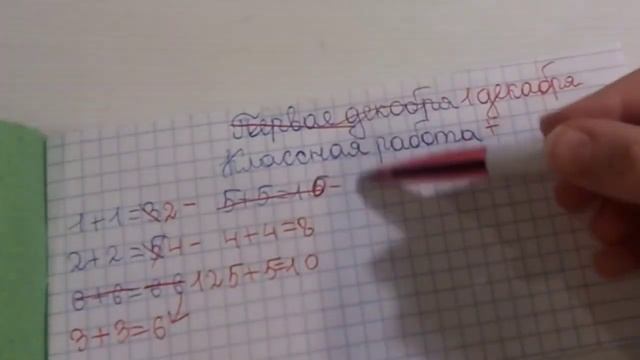 Первое декобря 1 декабря
Классная работа
1+1=32- 5+5=10-
2+2=54- 4+4=8
6+6=66 12 5+5=10
3+3=6